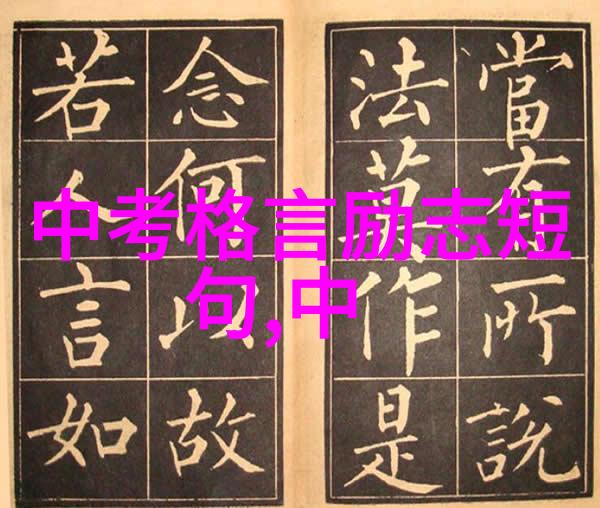 當有所說
法莫作是
念何以故
若人言如
中考格言励志短
句,中